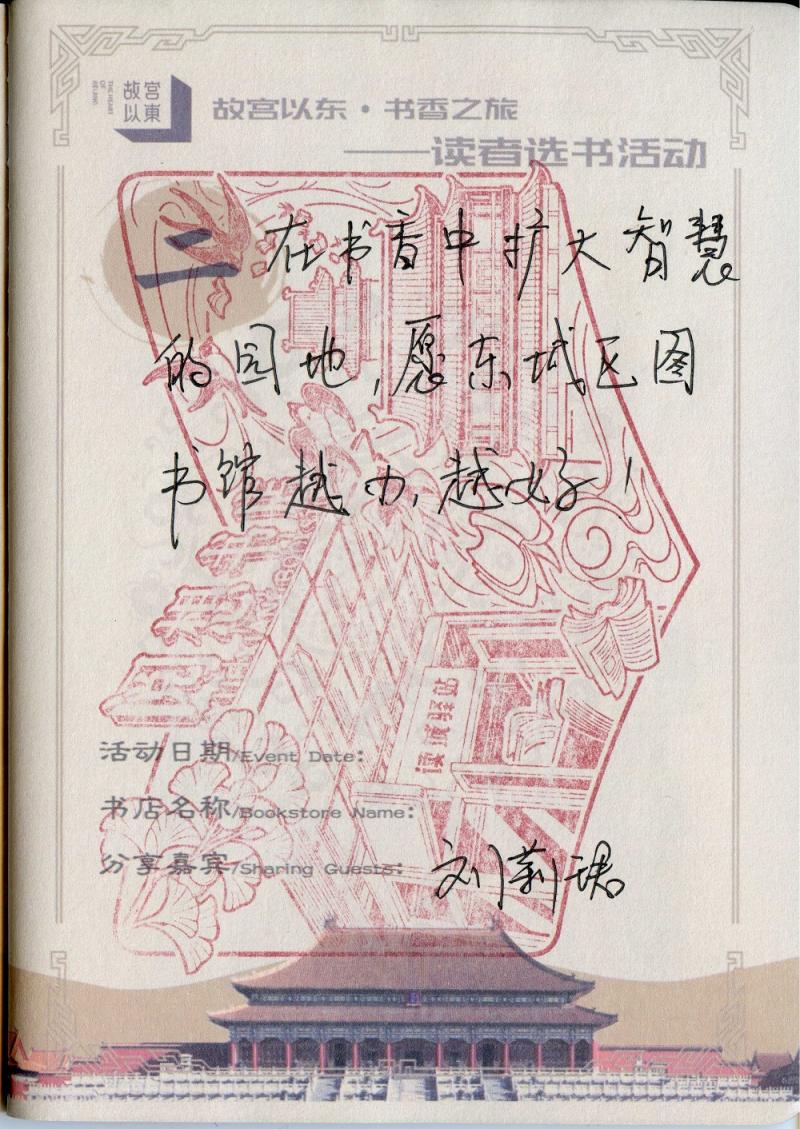 故宫
以東
THE HEART
OF
BEIJING
故宫以东·书香之旅
——读者选书活动
二
在书香中扩大智慧
的园地,愿东城区图
书馆越办,越好!
读城驿站
活动日期/Event Date:
书店名称/Bookstore Name:
分享嘉宾/Sharing Guests: 刘莉珺